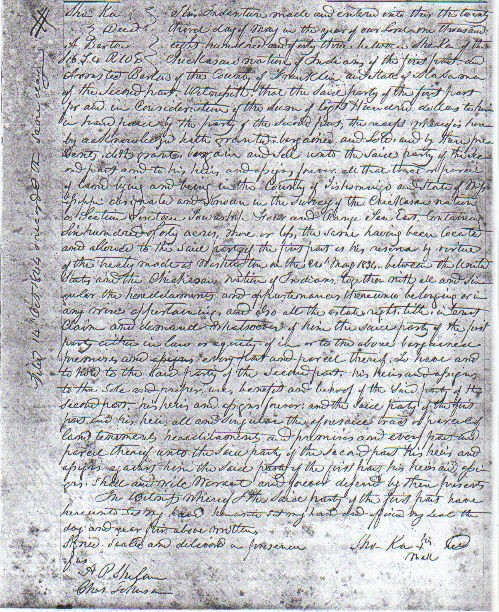 Sho Ka This Indenture made and entered into this the twenty
Deed third day of May in the year of our Lord one thousand
A Barton eight hundred and forty three between Sho Ka of the
Chickasaw nation of Indians of the first part and
Armsted Barton of the County of Franklin and State of Alabama
of the Second part, Witnesseth that the said party of the first part
for and in Consideration of the sum of Eight Hundred dollars to him
in hand paid by the party of the Second part, the receipt whereof is here
by acknowledged hath granted bargained and Sold and by these pre
sents, doth grant, bargain and Sell unto the said party of the sec
ond part and to his heirs and assigns forever all that tract or parcel
of land lying and being in the County of Tishomingo and State of Missi
ssippi designated and known in the Survey of the Chickasaw nation
as Section Township and Range Ten East, Containing
Six hundred & forty acres, more or less, the same having been located
and allowed to the said party of the first part as his reserve by virtue
of the treaty made at Washington on the 24th May 1834, between the United
States and the Chickasaw nation of Indians together with all and sin
gular the hereditaments and appurtenances thereunto belonging or in
any wise appertaining, and also all the estate right, title, interest
Claim and demand whatsoever of him the said party of the first
party either in law or equity of in or to the above bargained
premises and assigns every part and parcel thereof, To have and
to hold to the said party of the second part, his heirs and assigns
to the sole and proper use, benefit and behoof of the said party of the
second part, his heirs and assigns forever: and the said party of the first
part and his heirs, all and singular the aforesaid tract or parcel of
land tenements hereditaments, and premises and every part and
parcel thereof unto the said party of the second part his heirs and
assigns against him the said party of the first part his heirs and assi
gns: Shall and will Warrant and forever defend by these presents
In Witness whereof the said party of the first part have
hereunto set my hand hereunto set my hand and affixed my seal the
day and year first above written,
Signed Sealed and delivered in presence Sho Ka his seal
of us mark
A P
Chas Johnson
Filed 14 Oct 1844 & recorded the same day